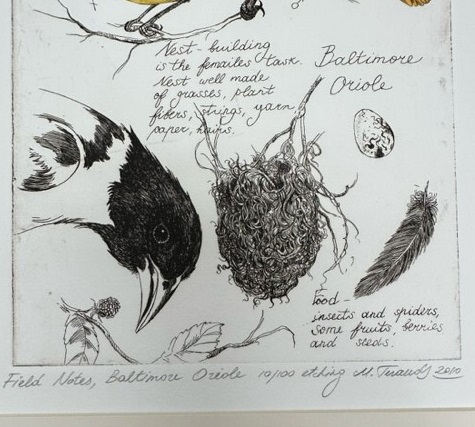 Nest-building
is the females task.
Nest well made
of grasses, plant
fibers, strings, yarn
paper, hairs.
Baltimore
Oriole
Food-
insects and spiders,
some fruits, berries
and seeds.
Field Notes, Baltimore Oriole 10/100 etching M. 2010